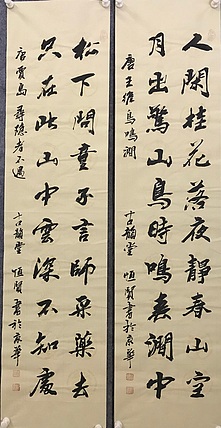 人閑桂花落夜靜春山空
月出驚山鳥時鳴春澗中
唐王維鳥鳴澗 古韻堂 恒賢書於京華
松下問童子言師采藥去
只在此山中雲深不知處
唐賈島尋隱者不遇 古韻堂 恒賢書於京華